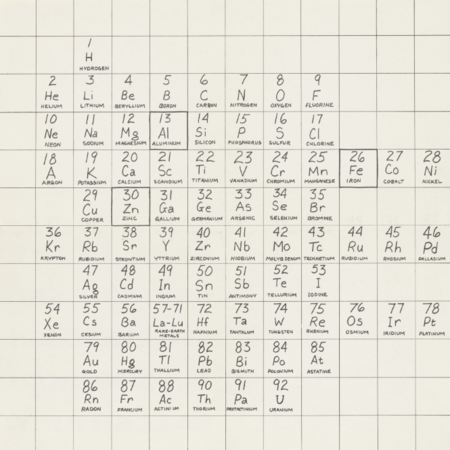 1
H
HYDROGEN
2 3 4 5 6 7 8 9
He Li Be B C N O F
HELIUM LITHIUM BERYLLIUM BORON CARBON NITROGEN OXYGEN FLUORINE
10 11 12 13 14 15 16 17
Ne Na Mg Al Si P S Cl
NEON SODIUM MAGNESIUM ALUMINUM SILICON PHOSPHORUS SULFUR CHLORINE
18 19 20 21 22 23 24 25 26 27 28
A K Ca Sc Ti V Cr Mn Fe Co Ni
ARGON POTASSIUM CALCIUM SCANDIUM TITANIUM VANADIUM CHROMIUM MANGANESE IRON COBALT NICKEL
29 30 31 32 33 34 35
Cu Zn Ga Ge As Se Br
COPPER ZINC GALLIUM GERMANIUM ARSENIC SELENIUM BROMINE
36 37 38 39 40 41 42 43 44 45 46
Kr Rb Sr Y Zr Nb Mo Tc Ru Rh Pd
KRYPTON RUBIDIUM STRONTIUM YTTRIUM ZIRCONIUM MOLYBDENUM TECHNETIUM PALLADIUM
47 48 49 50 51 52 53
Ag Cd In Sn Sb Te I
SILVER CADMIUM INDIUM TIN ANTIMONY TELLURIUM IODINE
54 55 56 57-71 72 73 74 75 76 77 78
Xe Cs Ba La-Lu Hf Ta W Re Os Ir Pt
XENON CESIUM BARIUM RARE-EARTH METALS HAFNIUM TANTALUM TUNGSTEN RHENIUM OSMIUM IRIDIUM PLATINUM
79 80 81 82 83 84 85
Au Hg Tl Pb Bi Po At
GOLD MERCURY THALLIUM LEAD BISMUTH POLONIUM ASTATINE
86 87 88 90 91 92
Rn Fr Ac Th Pa U
RADON FRANCIUM ACTINIUM THORIUM PROTACTINIUM URANIUM